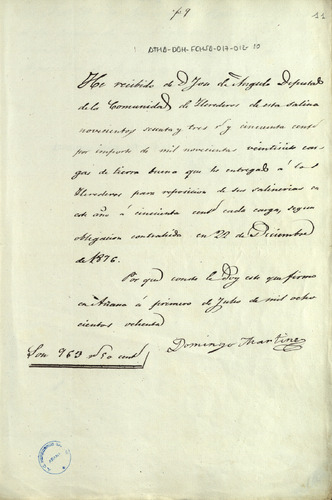 11
ATHA-DAH-FCHSA-017-016-10
He recibido de D. José de Angulo Diputado
de la Comunidad de Herederos de esta salina
novecientos sesenta y tres r.s y cincuenta cent.s
por importe de mil novecientas veintisiete car-
gas de tierra buena que he entregado á los
Herederos para reposicion de sus salinerias en
este año á cincuenta cent.s cada carga, segun
obligacion contratada en 22 de Diciembre
de 1876.
Por que conste le doy este que firmo
en Añana á primero de Julio de mil ocho
cientos ochenta
Domingo Martinez
Son 963 r.s 50 cent.s